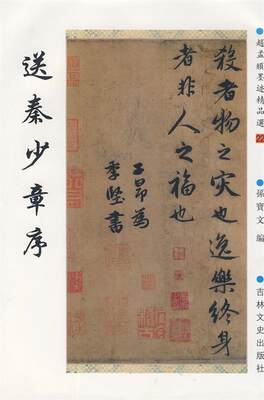 趙孟頫墨迹精品選 22
孫寶文 編
吉林文史出版社
殺者物之灾也逸樂終身
者非人之福也
子昂為
季堅書
送秦少章序